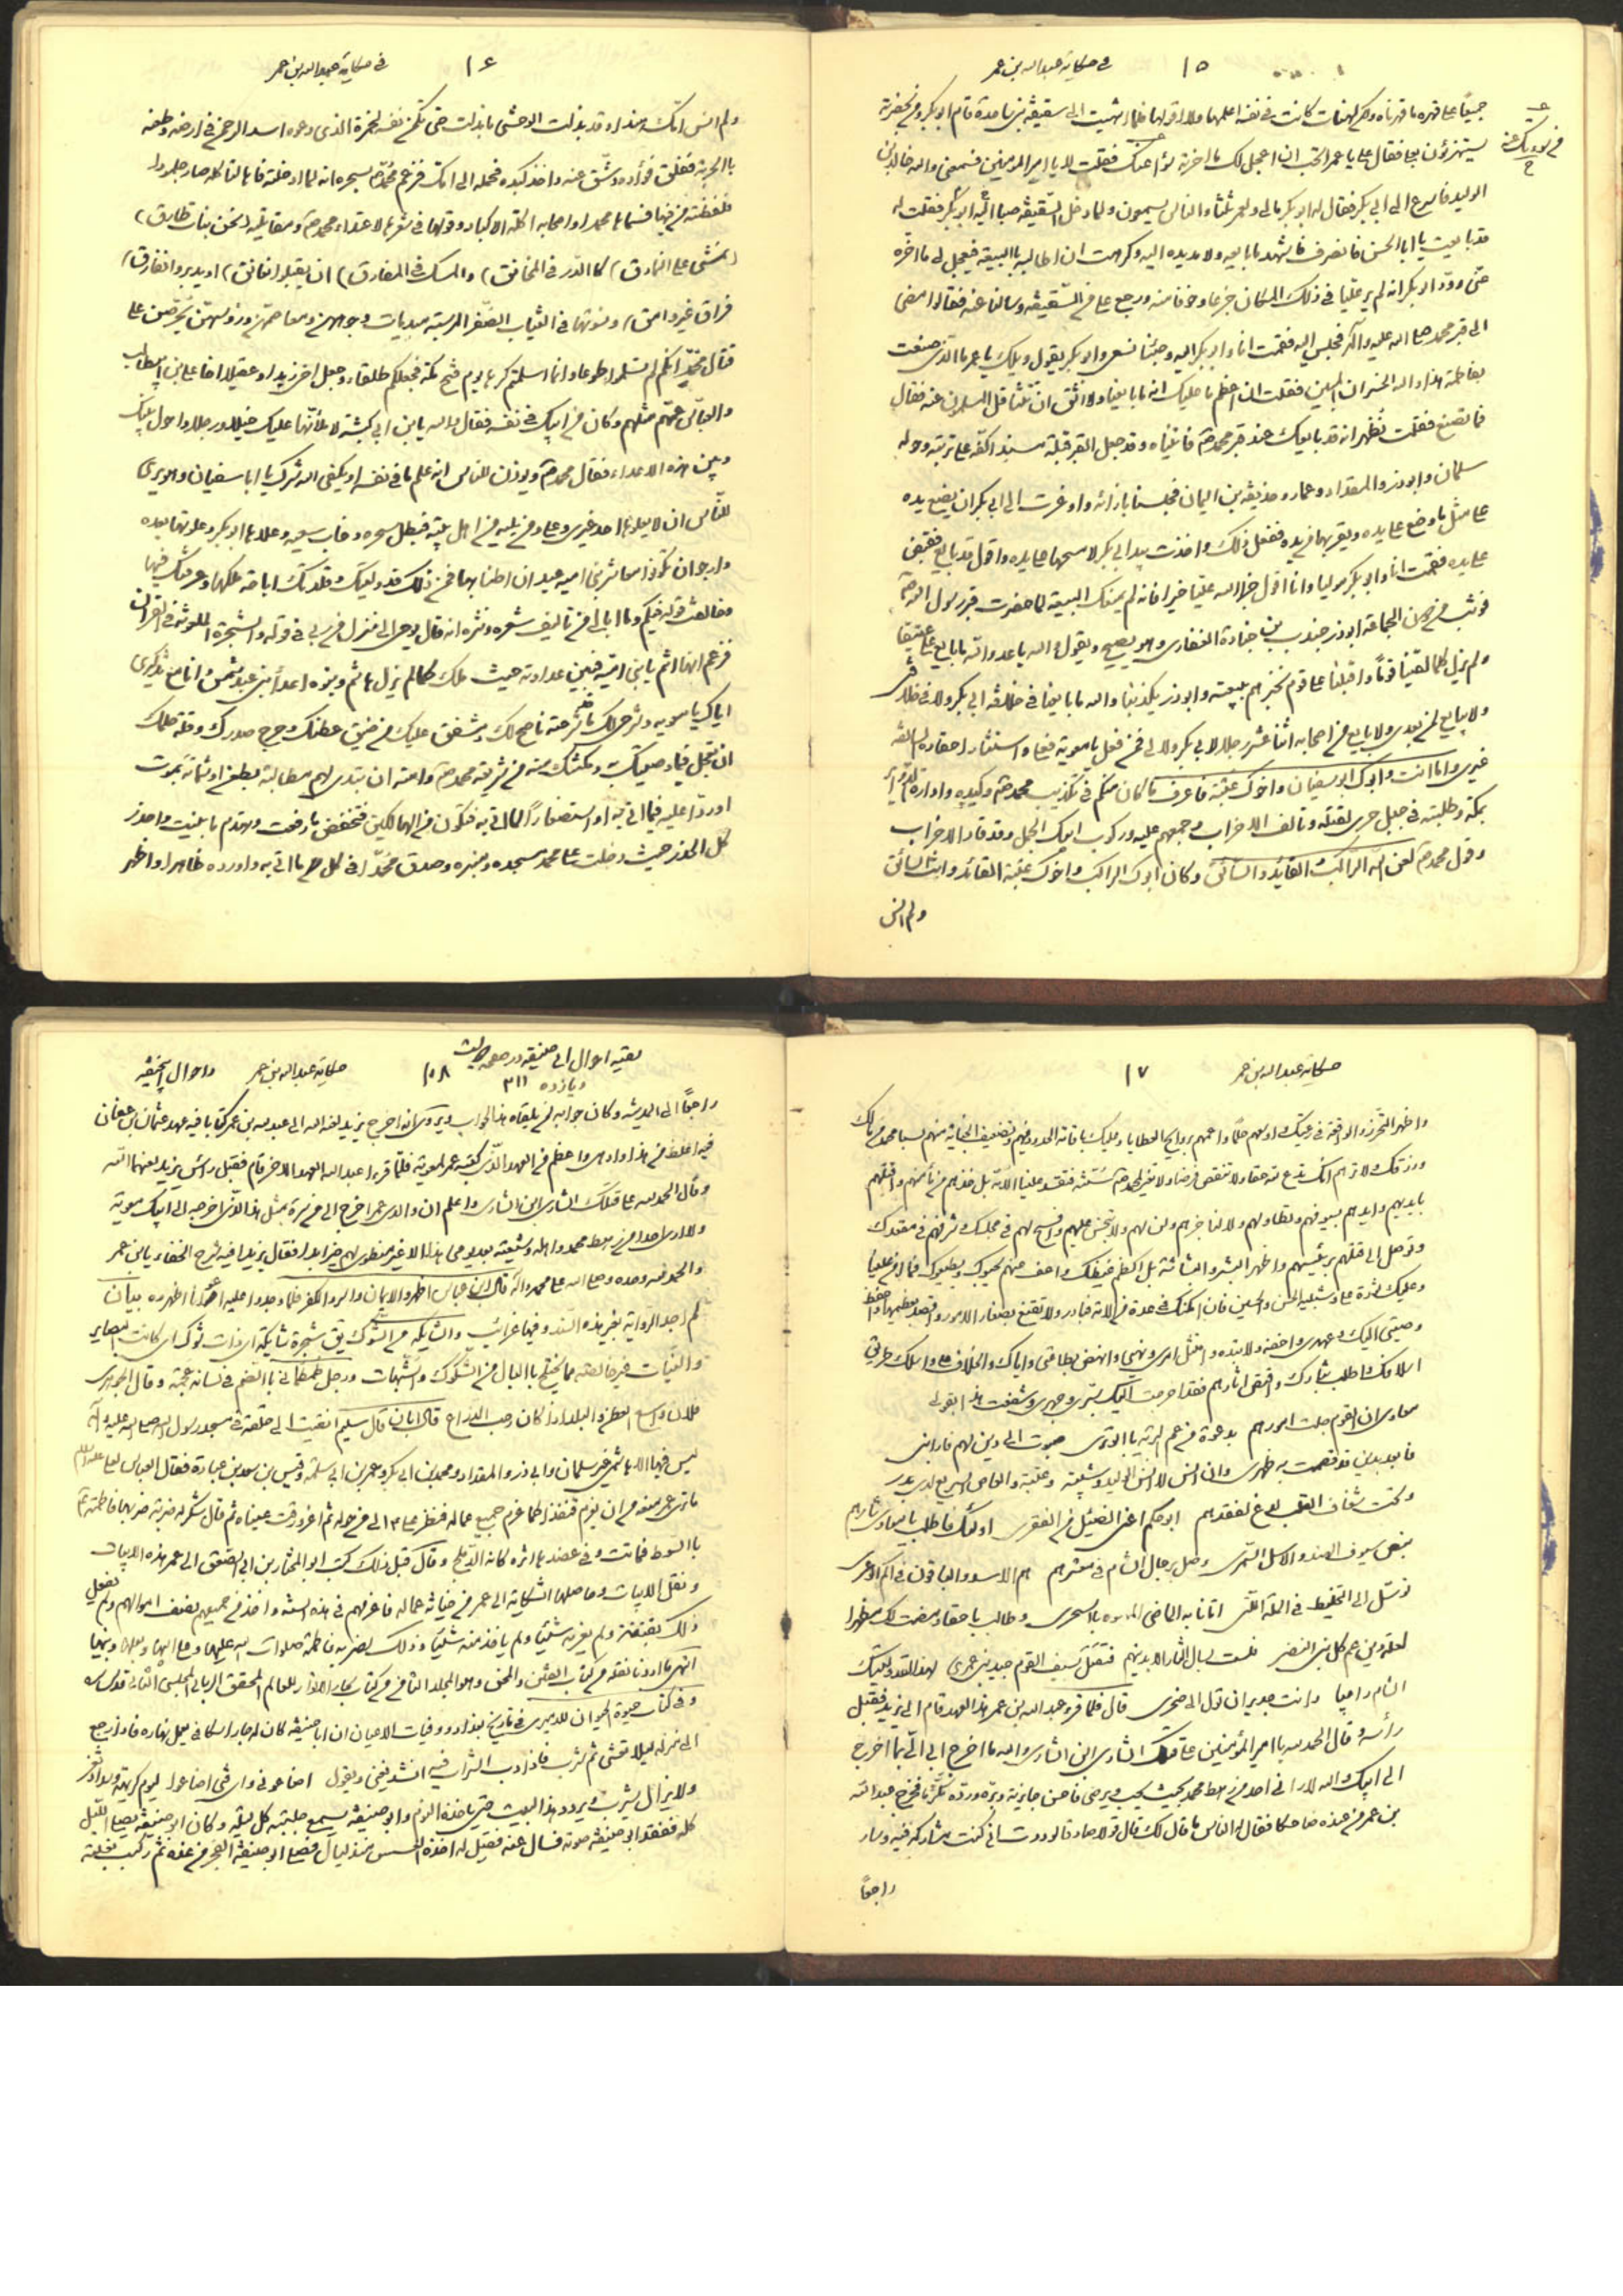 في حكاية عبد الله بن عمر
١٥
جميعًا على قهره ما قهرناه ولكن لهنات كانت في نفسه اعلمها ولا اقولها فلما انتهيت الى سقيفة بني ساعدة قام ابو بكر ومن بحضرته
يستهزؤن بها فقال علي يا عمر اتحب ان اعجل لك ما اخرته عنك فقلت لا يا امير المؤمنين فسمعني والله خالد بن
الوليد فاسرع الى ابي بكر فقال له ابو بكر مالي ولعمر ثلثا والناس يسمعون ولما دخل السقيفة صبا اليه ابو بكر فقلت له
قد بايعت يا ابا الحسن فانصرف فاشهد ما بايعه ولا مد يده اليه وكرهت ان اطالبه بالبيعة فيعجل لي ما اخره
عني وود ابو بكر انه لم ير عليا في ذلك المكان جزعا وخوفا منه ورجع علي من السقيفة وسالنا عنه فقالوا مضى
الى قبر محمد صلى الله عليه وآله فجلس اليه فقمت انا وابو بكر اليه وجئنا نسعى وابو بكر يقول ويلك يا عمر ما الذي صنعت
بفاطمة هذا والله الخسران المبين فقلت ان اعظم ما عليك انه ما بايعنا ولا اثق ان تتثاقل المسلمون عنه فقال
فما تصنع فقلت تظهر انه قد بايعك عند قبر محمد فاتيناه وقد جعل القبر قبلة مسندا كفه على تربته وحوله
سلمان وابو ذر والمقداد وعمار وحذيفة بن اليمان فجلسنا بازائه واوعزت الى ابي بكر ان يضع يده
على مثل ما وضع علي يده ويقربها من يده ففعل ذلك واخذت بيد ابي بكر لامسحها على يده واقول قد بايع فقبض
علي يده فقمت انا وابو بكر موليا وانا اقول جزا الله عليا خيرا فانه لم يمنعك البيعة لما حضرت قبر رسول الله
فوثب من دون الجماعة ابو ذر جندب بن جنادة الغفاري وهو يصيح ويقول والله يا عدو الله ما بايع علي عتيقا
ولم يزل كلما لقينا قومًا واقبلنا على قوم نخبرهم ببيعته وابو ذر يكذبنا والله ما بايعنا في خلافة ابي بكر ولا في خلافتي
ولا يبايع لمن بعدي ولا بايع من اصحابه اثنا عشر رجلا لا لابي بكر ولا لي فمن فعل يا معوية فعلي واستثار احقاده السالفة
غيري واما انت وابوك ابو سفيان واخوك عتبة فاعرف ما كان منكم في تكذيب محمد وكيده وادارة الدوائر
بمكة وطلبته في جبل حرى لقتله وتالف الاحزاب وجمعهم عليه وركوب ابيك الجمل وقد قاد الاحزاب
وقول محمد لعن الله الراكب والقائد والسائق وكان ابوك الراكب واخوك عتبة القائد وانت السائق
ولم انس
في حكاية عبد الله بن عمر
١٦
ولم انس امك هندا وقد بذلت لوحشي ما بذلت حتى تكمن نفسه لحمزة الذي دعوه اسد الرحمن في ارضه وطعنه
بالحربة ففلق فؤاده وشق عنه واخذ كبده فحمله الى امك فزعم محمد بسحره انه لما ادخلته فاها لتاكله صار جلمودا
فلفظته من فيها فسماها محمد واصحابه اكلة الاكباد وقولها في شعرها لاعتداء محمد ومقاتليه (نحن بنات طارق)
(نمشي على النمارق) (كالدر في المخانق) (والمسك في المفارق) (ان يقبلوا نعانق) (او يدبروا نفارق)
(فراق غير وامق) ونسوتها في الثياب الصفر المرسية مبديات وجوههن ومعاصمهن ورؤسهن يحرصن على
قتال محمد انكم لم تسلموا طوعا وانما اسلمتم كرها يوم فتح مكة فجعلكم طلقاء وجعل اخي زيدا وعقيلا اخا علي بن ابيطالب
والعباس عمهم مثلهم وكان من ابيك في نفسه فقال والله يابن ابي كبشة لاملأنها عليك خيلا ورجلا واحول بينك
وبين هذه الاعداء فقال محمد ويوذن للناس انه علم ما في نفسه او يكفي الله شرك يا ابا سفيان وهو يرى
للناس ان لا يعلوها احد غيري وعلي ومن يليه من اهل بيته فبطل سحره وخاب سعيه وعلاها ابو بكر وعلوتها بعده
وارجو ان تكونوا معاشر بني امية عيدان اطنابها فمن ذلك قد وليتك وقلدتك اباحة ملكها وعرفتك فيها
وخالفت قوله فيكم وما ابالي من تاليف شعره ونثره انه قال يوحى الي منزل من ربي في قوله والشجرة الملعونة في القران
فزعم انها انتم يا بني امية فبين عداوته حيث ملك كما لم يزل هاشم وبنوه اعداء بني عبد شمس وانا مع تذكيري
اياك يا معوية وشرحي لك ما شرحته ناصح لك ومشفق عليك من ضيق عطنك وحرج صدرك وقلة حلمك
ان تعجل فيما وصيتك به ومكنتك منه من شريعة محمد وامته ان تبتدي لهم مطالبة بطعن او شماتة بموت
اوردا عليه فيما اتى به او استصغارًا لما اتى به فتكون من الهالكين فتخفض ما رفعت وتهدم ما بنيت واحذر
كل الحذر حيث دخلت على محمد مسجده ومنبره وصدق محمدا في كل ما اتى به واورده ظاهرا واظهر
حكاية عبد الله بن عمر
١٧
واظهر التحرز والواقعة في رعيتك واوسعهم حلمًا واعمهم بروايح العطايا وعليك باقامة الحدود فيهم وتضعيف الجناية منهم لسبا محمد من مالك
ورزقك ولا ترهم انك تدع لله حقا ولا تنقص فرضا ولا تغير لمحمد سنة فتفسد علينا الامة بل خذهم من مأمنهم واقتلهم
بايديهم وابدهم بسيوفهم وتطاولهم ولا تناجزهم ولن لهم ولا تبخس عليهم وافسح لهم في مجلسك وشرفهم في مقعدك
وتوصل الى قتلهم برئيسهم واظهر البشر والبشاشة بل اكظم غيظك واعف عنهم يحبوك ويطيعوك فما آمن علينا
وعليك ثورة علي وشبليه الحسن والحسين فان امكنك في عدة من الامة فبادر ولا تقنع بصغار الامور واقصد بعظيمها واحفظ
وصيتي اليك وعهدي واخفه ولا تبده وامتثل امري ونهيي وانهض بطاعتي واياك والخلاف علي واسلك طريق
اسلافك واطلب بثارك واقتص اثارهم فقد اخرجت اليك بسري وجهري وشفعت هذا بقولي
معاوي ان القوم جلت امورهم بدعوة من عم البرية بالوترى صبوت الى دين لهم فارابني
فابعد بدين قد قصمت به ظهري وان انس لا انس الوليد وشيبة وعتبة والعاص السريع لدى بدر
وتحت شغاف القلب لدغ لفقدهم ابو حكم اعني الضئيل من الفقرى اولئك فاطلب يا معاوي ثارهم
بنصل سيوف الهند والاسل السمرى وصل برجال الشام في معشرهم هم الاسد والباقون في اكم الوعرى
توسل الى التخليط في الملة التي اتانا به الماضي المموه بالسحرى وطالب باحقاد مضت لك مظهرا
لعلة دين عم كل بني النضر فلست تنال الثار الا بدينهم فتقتل بسيف القوم جيد بني عمرى لهذا لقد وليتك
الشام راجيا وانت جدير ان تؤل الى صخرى قال فلما قرء عبد الله بن عمر هذا العهد قام الى يزيد فقبل
رأسه وقال الحمد لله يا امير المؤمنين على قتلك الشاري ابن الشاري والله ما اخرج ابي الي بما اخرج
الى ابيك والله لا راني احد من رهط محمد بحيث يحب ويرضى فاحسن جايزته وبره ورده مكرمًا فخرج عبد الله
بن عمر من عنده ضاحكا فقال له الناس ما قال لك قال قولا صادقا لوددت اني كنت مشاركه فيه وسار
راجعًا
بقية احوال ابي حنيفه در صفحه
ويازده ٣١١
١٨
حكاية عبد الله بن عمر واحوال ابيحنيفه
راجعًا الى المدينة وكان جوابه لمن يلقاه هذا الجواب ويروى انه اخرج يزيد لعنه الله الى عبد الله بن عمر كتابا فيه عهد عثمان بن عفان
فيه اغلظ من هذا وادهى واعظم من العهد الذي كتبه عمر لمعوية فلما قرء عبد الله العهد الاخر قام فقبل رأس يزيد لعنهما الله
وقال الحمد لله على قتلك الشاري ابن الشاري واعلم ان والدي عمر اخرج الي من سره بمثل هذا الذي اخرجه الى ابيك معوية
ولا ارى احدا من رهط محمد واهله وشيعته بعد يومي هذا الا غير منطو لهم خيرا ابدا فقال يزيد افيه شرح الخفاء يابن عمر
والحمد لله وحده وصلى الله على محمد وآله قال ابن عباس اظهروا الايمان واسروا الكفر فلما وجدوا عليه اعوانا اظهروه بيان
لم اجد الرواية بغير هذه السند وفيها غرائب والشايكة من الشوك يق شجرة شايكة اي ذات شوك اي كانت البصاير
والنيات غير خالصة مما يختلج بالبال من الشكوك والشبهات ورجل طمطمائي بالضم في لسانه عجمة وقال الجوهري
فلان واسع العطن والبلد اذا كان رحب الذراع قال ابان قال سليم انتهيت الى حلقة في مسجد رسول الله صلى الله عليه وآله
ليس فيها الا هاشمي غير سلمان وابي ذر والمقداد ومحمد بن ابي بكر وعمر بن ابي سلمة وقيس بن سعد بن عبادة فقال العباس لعلي عليه السلام
ما ترى عمر منعه من ان يغرم قنفذا كما غرم جميع عماله فنظر علي الى من حوله ثم اغرورقت عيناه ثم قال شكر له ضربة ضربها فاطمة
بالسوط فماتت وفي عضدها اثره كانه الدملج وقال قبل ذلك كتب ابو المختار بن ابي الصعق الى عمر هذه الابيات
ونقل الابيات وحاصلها الشكاية الى عمر من خيانة عماله فاغرمهم في هذه السنة واخذ من جميعهم نصف اموالهم ولم يفعل
ذلك بقنفذ ولم يغرمه شيئا ولم ياخذ منه شيئا وذلك لضربه فاطمة صلوات الله عليها وعلى ابيها وبعلها وبنيها
انتهى ما اردنا نقله من كتاب الفتن والمحن وهو المجلد الثامن من كتب بحار الانوار للعالم المحقق الرباني المجلسي الثاني قدس سره
وفي كتاب حيوة الحيوان للدميري في تاريخ بغداد ووفيات الاعيان ان ابا حنيفة كان له جار اسكاف يعمل نهاره فاذا رجع
الى منزله ليلا تعشى ثم شرب فاذا دب الشراب فيه انشد يغني ويقول اضاعوني واي فتى اضاعوا ليوم كريهة وسداد ثغر
ولا يزال يشرب ويردد هذا البيت حتى ياخذه النوم وابو حنيفة يسمع جلبته كل ليلة وكان ابو حنيفة يصلي الليل
كله ففقد ابو حنيفة صوته فسال عنه فقيل له اخذه العسس منذ ليال فصلى ابو حنيفة الفجر من غده ثم ركب بغلته